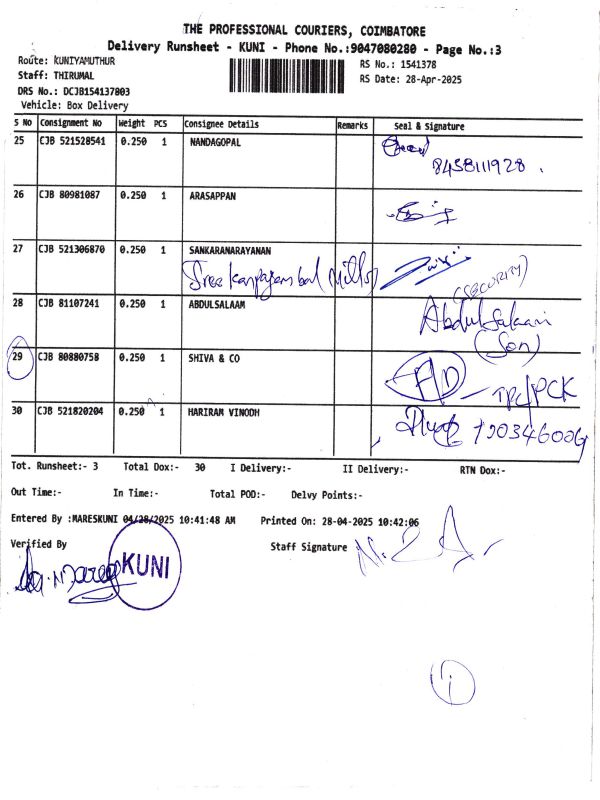 THE PROFESSIONAL COURIERS, COIMBATORE
Delivery Runsheet - KUNI - Phone No.:9047080280 - Page No.:3
Route: KUNIYAMUTHUR
RS No.: 1541378
Staff: THIRUMAL
RS Date: 28-Apr-2025
DRS No.: DCJB154137803
Vehicle: Box Delivery
S No Consignment No Weight PCS Consignee Details Remarks Seal & Signature
25 CJB 521528541 0.250 1 NANDAGOPAL
8438111928
26 CJB 80981087 0.250 1 ARASAPPAN
27 CJB 521306870 0.250 1 SANKARANARAYANAN
Sree Mills
(SECURITY)
28 CJB 81107241 0.250 1 ABDULSALAAM
Abdulsalaam
(Son)
29 CJB 80880758 0.250 1 SHIVA & CO
F/D
30 CJB 521820204 0.250 1 HARIRAM VINODH
Tot. Runsheet:- 3 Total Dox:- 30 I Delivery:- II Delivery:- RTN Dox:-
Out Time:- In Time:- Total POD:- Delvy Points:-
Entered By :MARESKUNI 04/28/2025 10:41:48 AM Printed On: 28-04-2025 10:42:06
Verified By
Staff Signature
KUNI
1